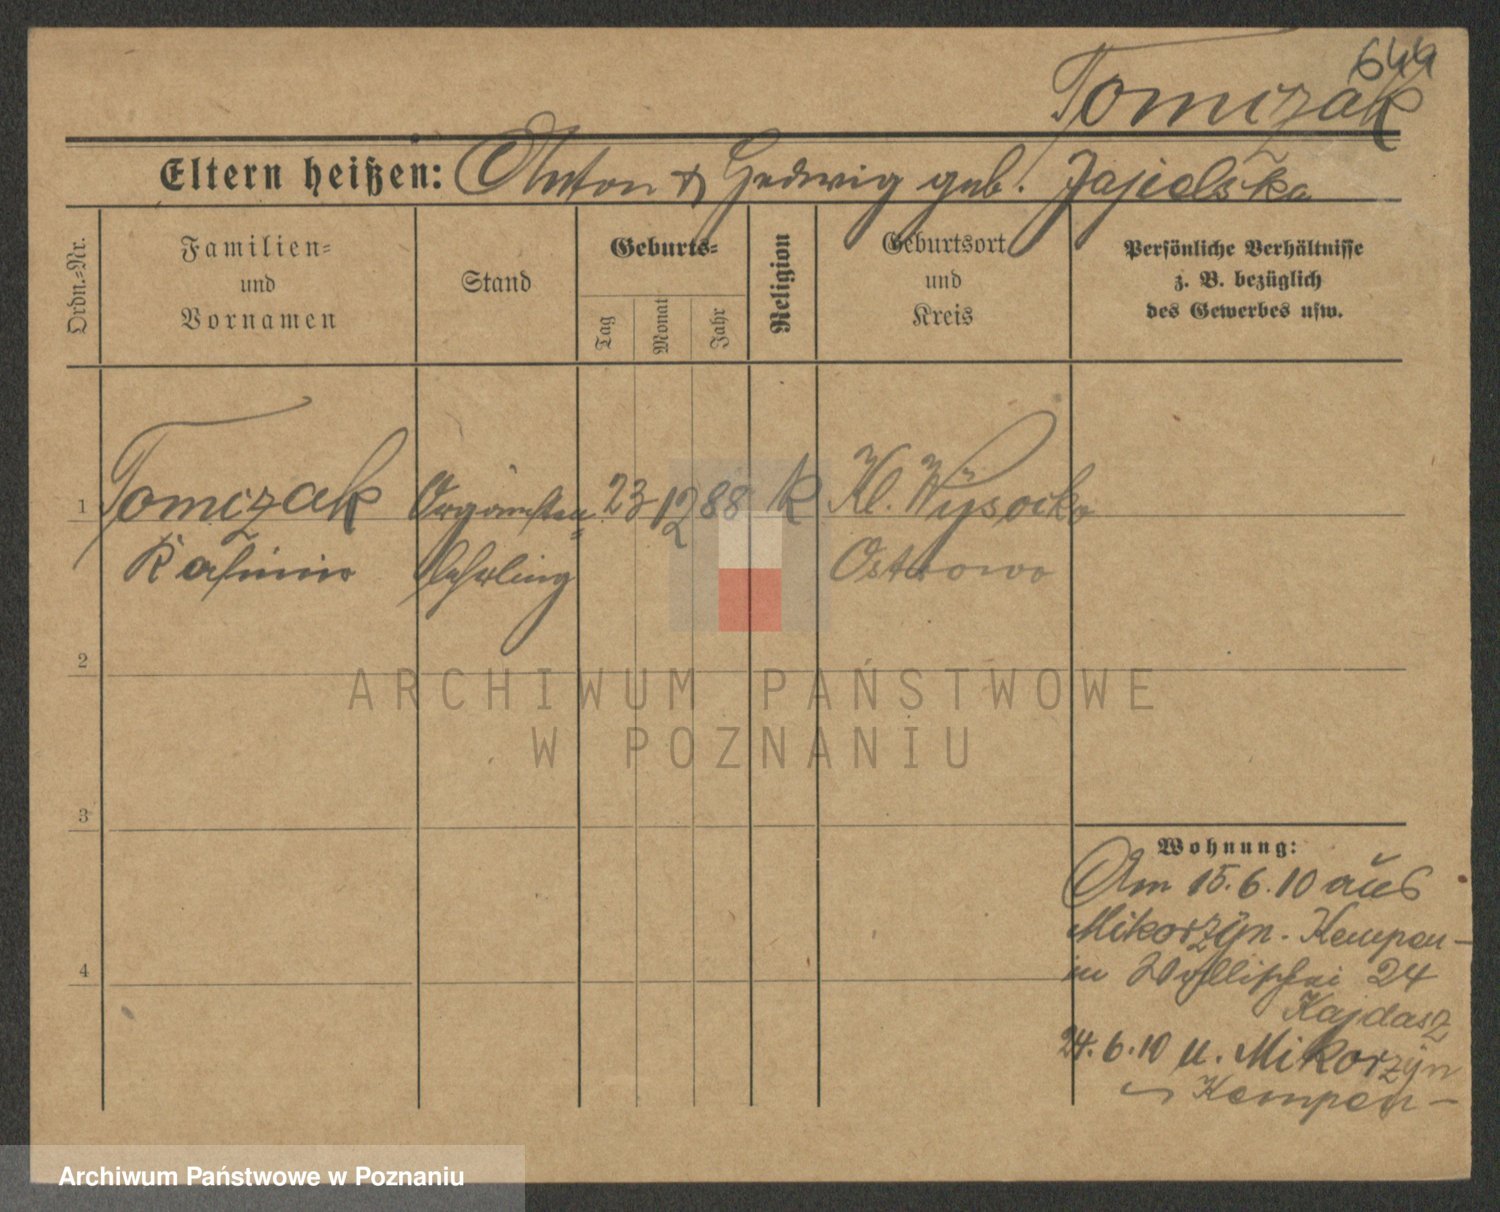 649
Tomczak
Eltern heißen: Anton & Hedwig geb. Jajielska
Ordn.-Nr.
Familien-
und
Vornamen
Stand
Geburts-
Tag
Monat
Jahr
Religion
Geburtsort
und
Kreis
Persönliche Verhältnisse
z. B. bezüglich
des Gewerbes usw.
1 Tomczak Organisten 23 12 88 K Kl. Wysocko
Kasimir lehrling Ostrowo
2
3
4
Wohnung:
Am 15.6.10 aus
Mikorzyn. Kempen -
in Wallischei 24
Kajdasz
24.6.10 n. Mikorzyn
Kempen -
ARCHIWUM PAŃSTWOWE
W POZNANIU
Archiwum Państwowe w Poznaniu